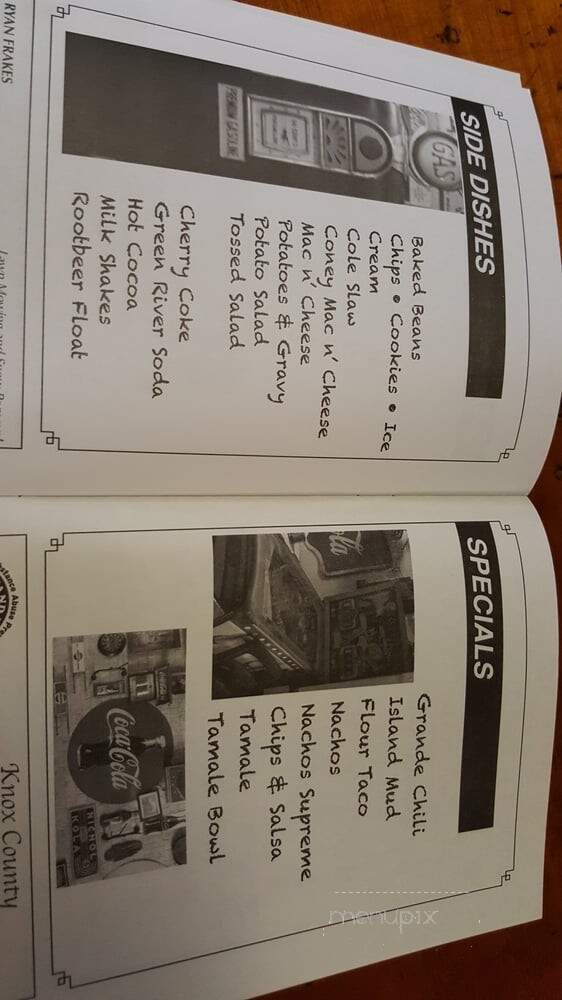 SIDE DISHES
GAS
PREMIUM GASOLINE
Baked Beans
Chips • Cookies • Ice
Cream
Cole Slaw
Coney Mac n' Cheese
Mac n' Cheese
Potatoes & Gravy
Potato Salad
Tossed Salad
Cherry Coke
Green River Soda
Hot Cocoa
Milk Shakes
Rootbeer Float
RYAN FRAKES
SPECIALS
Grande Chili
Island Mud
Flour Taco
Nachos
Nachos Supreme
Chips & Salsa
Tamale
Tamale Bowl
Coca-Cola
NICHOL
KOLA
Knox County
menupix